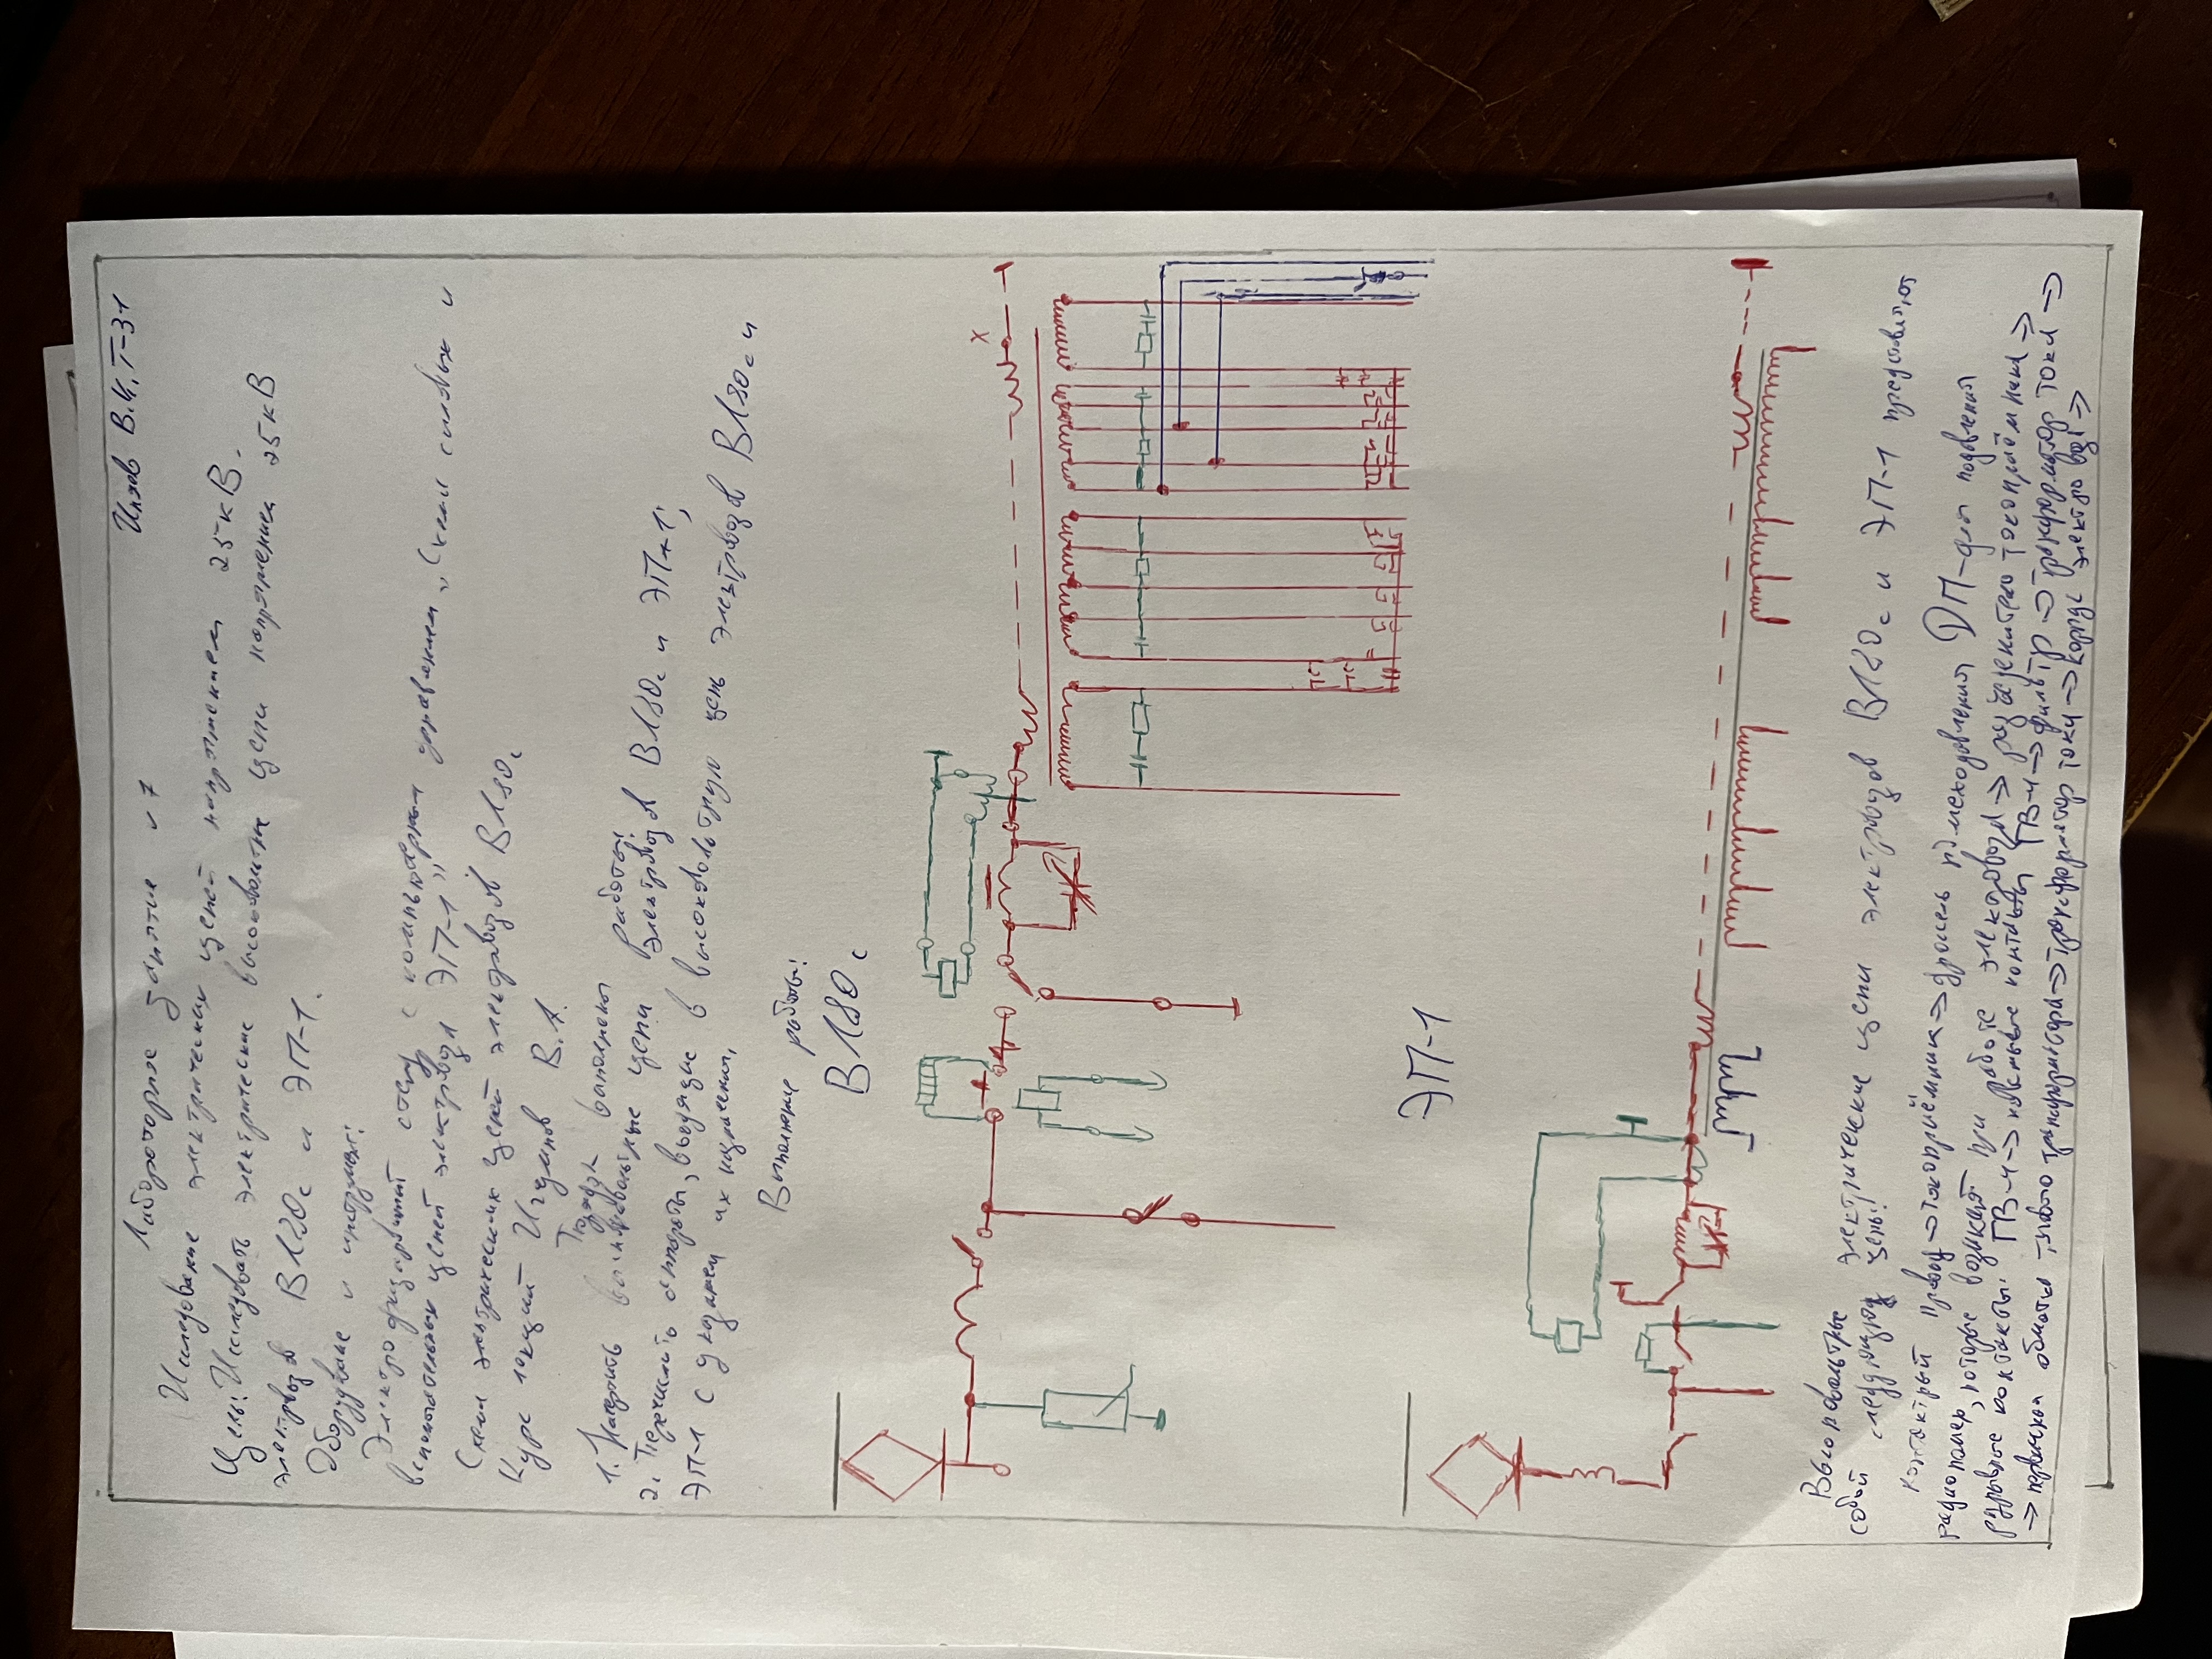 В.И. Т-31
Лабораторное занятие № 7
Исследование электрических цепей напряжением 25 кВ.
Цель: Исследовать электрические высоковольтные цепи напряжения 25 кВ
электровозов ВЛ80с и ЭП-1.
Оборудование и инструмент:
Электрофицированный стенд с компьютерным управлением „Схема силовых и
вспомогательных цепей электровоза ЭП-1„
Схема электрических цепей электровозов ВЛ80с
Курс лекций В.А.
Порядок выполнения работы:
1. Начертить высоковольтные цепи электровозов ВЛ80с и ЭП-1;
2. Перечислить аппараты, входящие в высоковольтную цепь электровозов ВЛ80с и
ЭП-1 с указанием их назначения,
Выполнение работы:
ВЛ80с
х
ЭП-1
Высоковольтные электрические цепи электровозов ВЛ80с и ЭП-1 представляют
собой следующую цепь:
контактный провод → токоприёмник → дроссель ДП-для подавления
радиопомех, которые возникают при работе электровоза → разъединитель токоприёмника →
→ ГВ-4 → фильтр → трансформатор тока →
→ первичная обмотка тягового трансформатора → трансформатор тока → корпус электровоза →